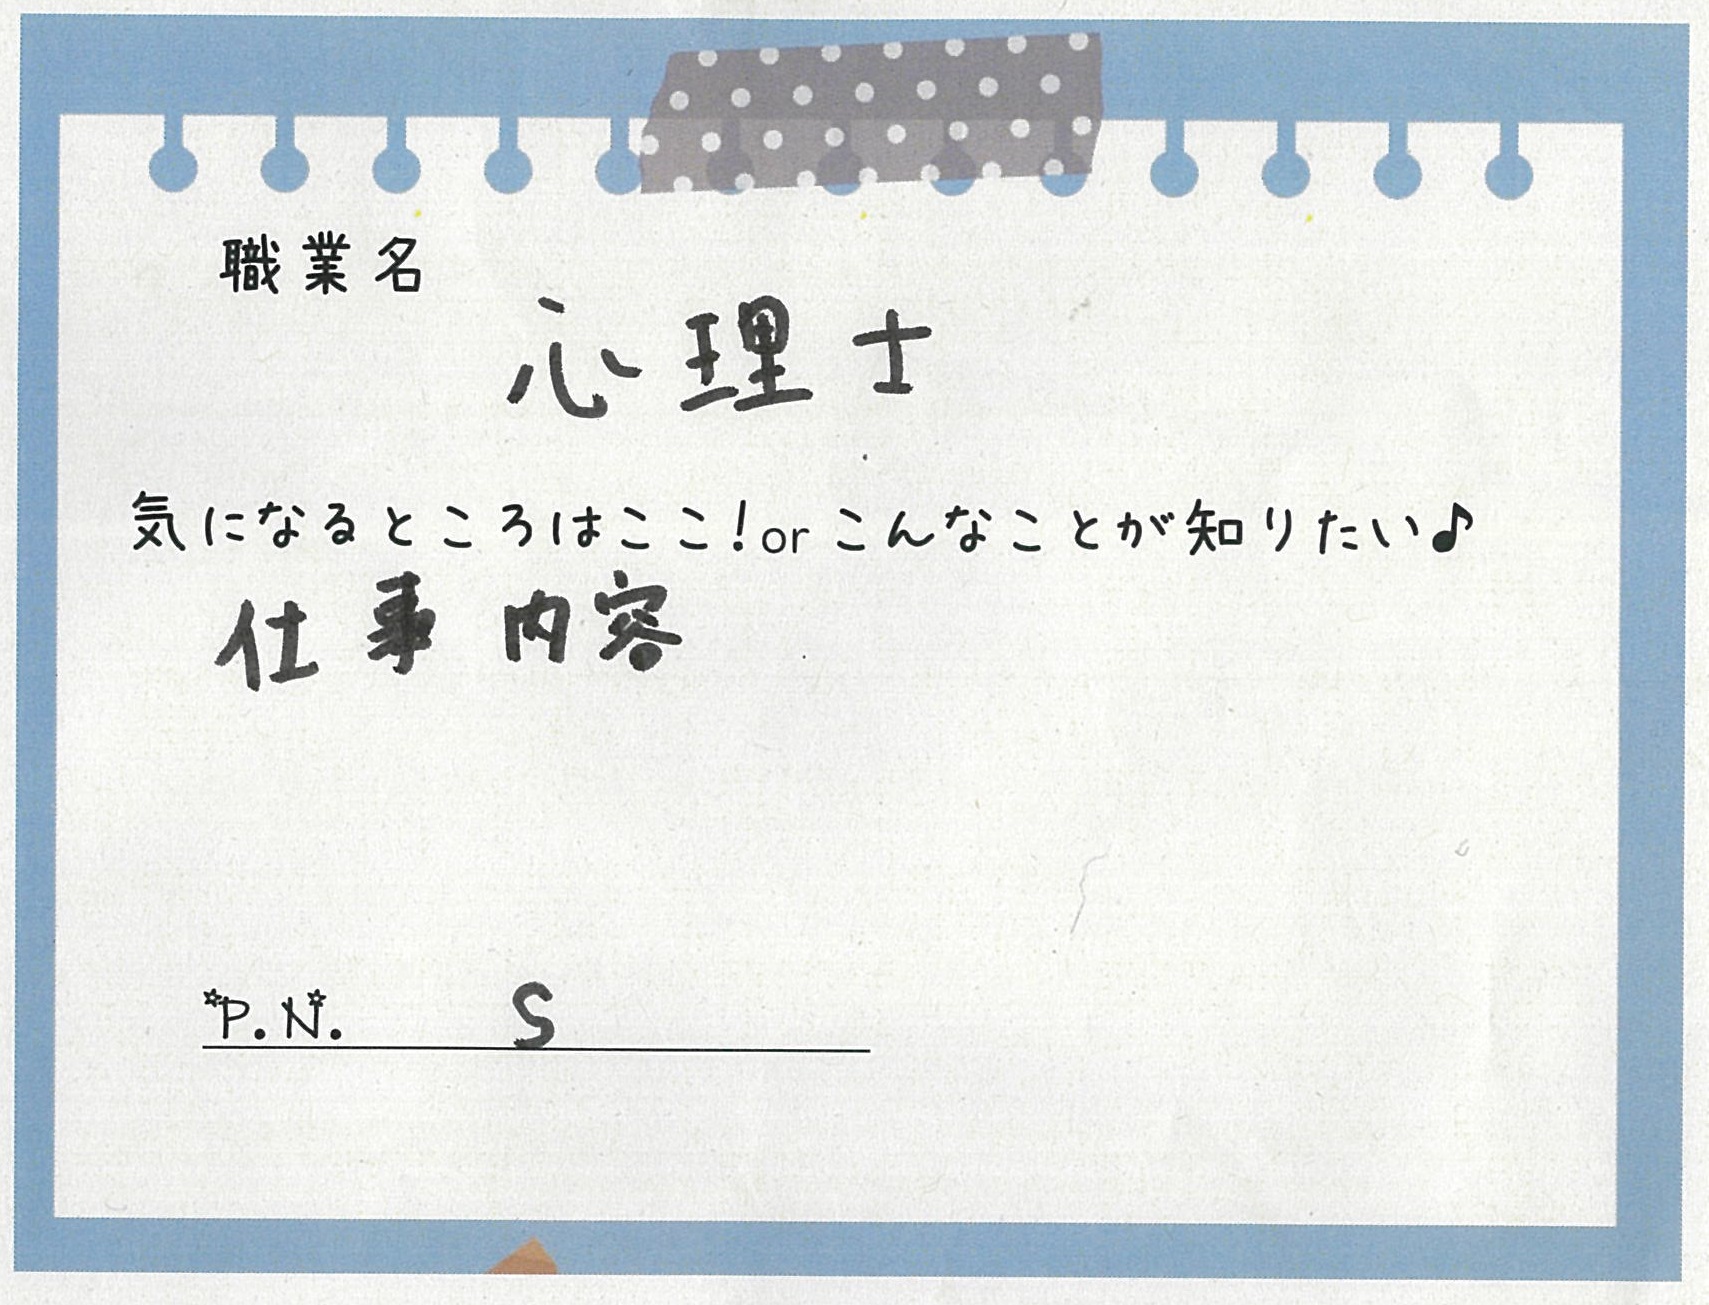 職業名
心理士
気になるところはここ！or こんなことが知りたい♪
仕事内容
P.N. S